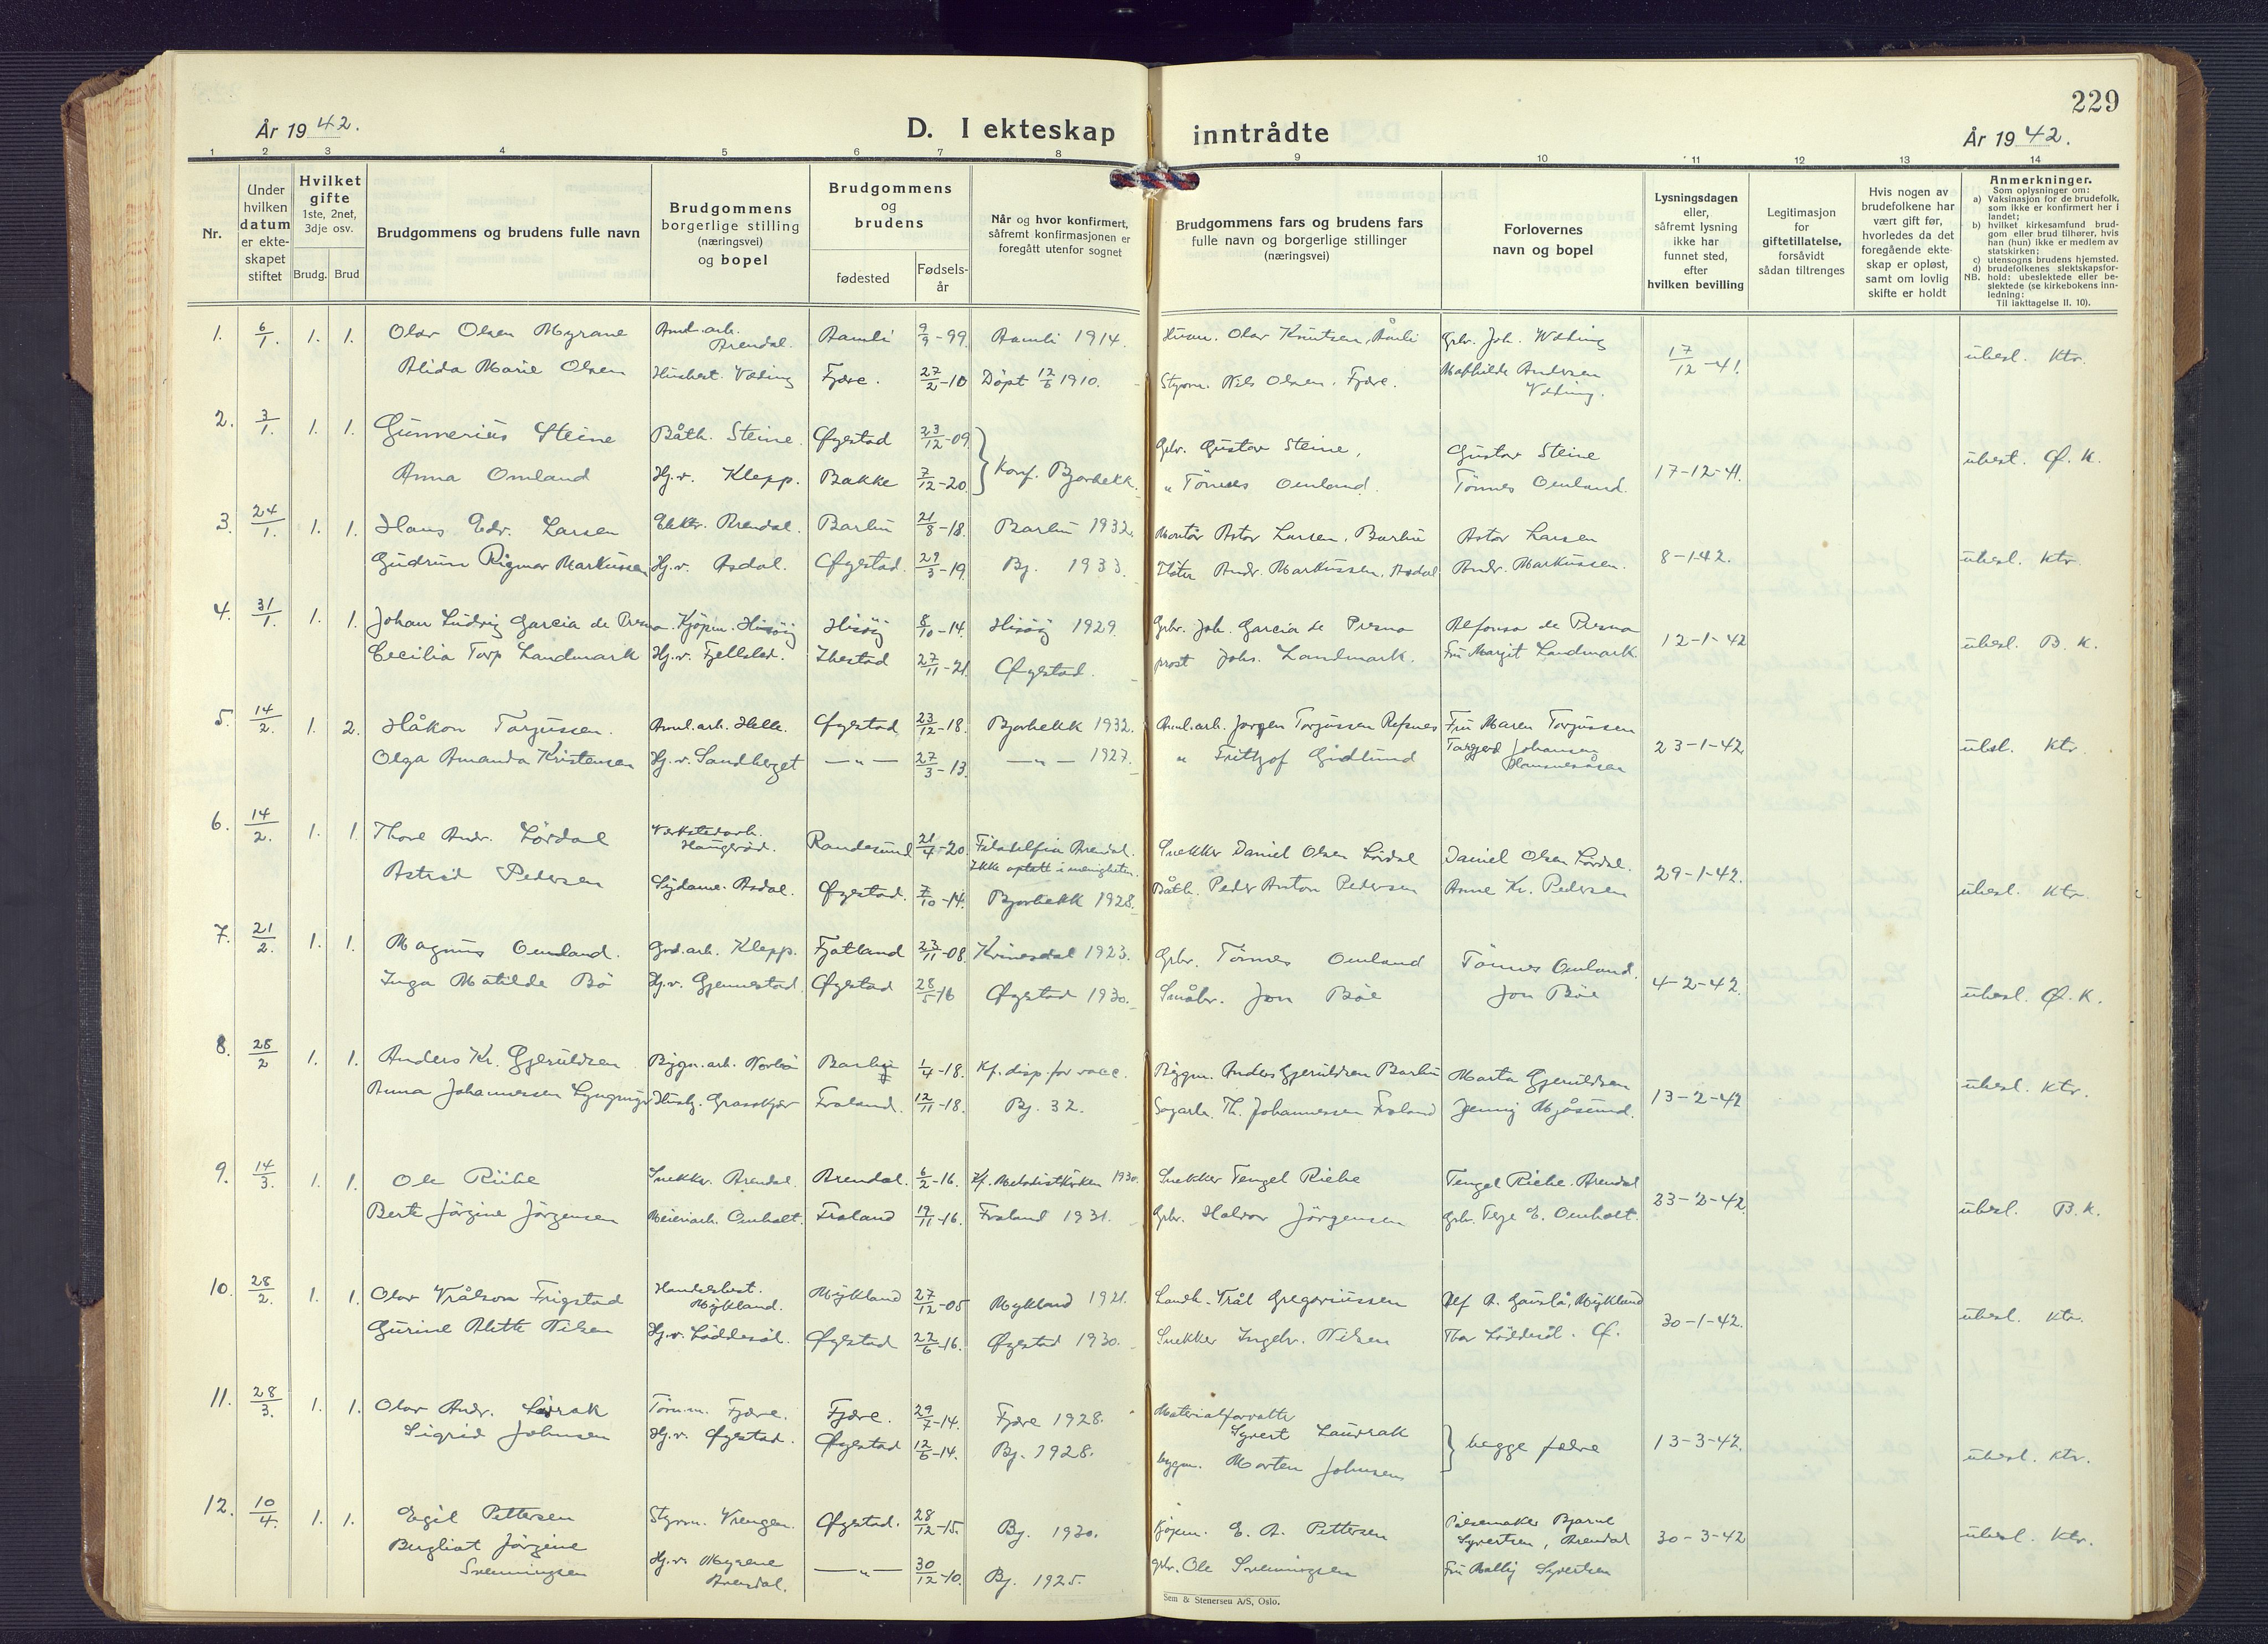 229
År 1942.
D. I ekteskap inntrådte
År 1942.
1 2 3 4 5 6 7 8 9 10 11 12 13 14
Nr.
Under hvilken datum er ekte-skapet stiftet
Hvilket gifte 1ste, 2net, 3dje osv.
Brudg. Brud
Brudgommens og brudens fulle navn
Brudgommens borgerlige stilling (næringsvei) og bopel
Brudgommens og brudens
fødested
Fødsels-år
Når og hvor konfirmert, såfremt konfirmasjonen er foregått utenfor sognet
Brudgommens fars og brudens fars fulle navn og borgerlige stillinger (næringsvei)
Forlovernes navn og bopel
Lysningsdagen eller, såfremt lysning ikke har funnet sted, efter hvilken bevilling
Legitimasjon for giftetillatelse, forsåvidt sådan tiltrenges
Hvis nogen av brudefolkene har vært gift før, hvorledes da det foregående ekte-skap er opløst, samt om lovlig skifte er holdt
Anmerkninger.
Som oplysninger om:
a) Vaksinasjon for de brudefolk, som ikke er konfirmert her i landet;
b) hvilket kirkesamfund brud-gom eller brud tilhører, hvis han (hun) ikke er medlem av statskirken;
c) utensogns brudens hjemsted.
d) brudefolkenes slektskapsfor-
NB. hold: ubeslektede eller be-slektede (se kirkebokens inn-ledning: Til iakttagelse II. 10).
1. 6/1. 1. 1. Olav Olsen Myrane Aamli 9/9-99. Aamli 1914. Olav Knutsen, Åmli 17/12-41. ubesl. Ktr.
Alida Marie Olsen Fjære. 27/2-10 Döpt 12/6 1910. Styrm. Nils Olsen. Fjære. Mathilde Andersen
2. 3/1. 1. 1. Gunnerius Steine Båth. Steine. Øyestad 23/12-09. Gbr. Gustav Steine, Gustav Steine 17-12-41. ubesl. Ø. K.
Anna Omland Hj.v. Klepp. Bakke 7/12-20. Konf. Bjorbekk. " Tönnes Omland. Tönnes Omland.
3. 24/1. 1. 1. Hans Edv. Larsen Elektr. Arendal. Barbu 21/8-18. Barbu 1932. Montör Astor Larsen, Barbu Astor Larsen 8-1-42. ubesl. Ktr.
Gudrun Rigmor Markussen Hj.v. Asdal. Øyestad. 29/3-19. Bj. 1933. Andr. Markussen, Asdal Andr. Markussen.
4. 31/1. 1. 1. Johan Ludvig Garcia de Presno. Kjöpm. Hisöy Hisöy 8/10-14. Hisöy 1929. Gbr. Joh. Garcia de Presno Alfonso de Presno 12-1-42 ubesl. B. K.
Cecilia Torp Landmark Hj.v. Fjellsted. Ibestad 27/11-21. Øyestad. prost Johs. Landmark. Fru Margit Landmark
5. 14/2. 1. 2. Håkon Torjussen. Aml.arb. Helle. Øyestad 23/12-18. Bjorbekk 1932. Aml.arb. Jørgen Torjussen Refsnes Fru Maren Torjussen 23-1-42 ubsl. Ktr.
Olga Amanda Kristensen Hj.v. Sandberget —"— 27/3-13. —"— 1927. " Frithjof Gidlund Torgjerd Johansen
6. 14/2. 1. 1. Thore Andr. Lördal Verkstedarb. Haugeröd. Randesund 21/4-20 Filadelfia Arendal. Ikke optatt i menigheten. Snekker Daniel Olsen Lördal Daniel Olsen Lördal. 29-1-42. ubesl. Ktr.
Astrid Pedersen Sydame. Asdal. Øyestad. 7/10-14. Bjorbekk 1928. Båtb. Peder Anton Pedersen Anne Kr. Pedersen
7. 21/2. 1. 1. Magnus Omland. Grd.arb. Klepp. Fjotland 23/11-08. Kvinesdal 1923. Gbr. Tönnes Omland Tönnes Omland. 4-2-42. ubesl. Ø.K.
Inga Matilde Bö Hj.v. Gjennestad. Øyestad 28/5-16 Øyestad 1930. Småbr. Jon Böe Jon Böe
8. 28/2 1. 1. Anders Kr. Gjeruldsen Bygn.arb. Barbu 1/4-18. Kf. disp. for vacc. Bygm. Anders Gjeruldsen Barbu Marta Gjeruldsen 13-2-42 ubesl. Ktr.
Anna Johannessen Lyngmyr Hush. Grasskjær Froland. 12/11-18. Bj. 32. Sagarb. Th. Johannessen Froland Jenny Mjåsund.
9. 14/3. 1. 1. Ole Riibe Snekker. Arendal. Arendal. 6/2-16. Kf. Metodistkirken 1930. Snekker Tengel Riebe Tengel Riebe. Arendal 23-2-42 ubesl. B.K.
Berte Jörgine Jörgensen Meieriarb. Omholt. Froland 19/11-16. Froland 1931. Gbr. Halvor Jörgensen Gbr. Terje E. Omholt.
10. 28/2. 1. 1. Olav Vrålson Frigstad Handelsbest. Mykland. Mykland 27/12-05 Mykland 1921. Landh. Vrål Gregoriussen Alf A. Gauslå, Mykland 30-1-42. ubesl. Ktr.
Gurine Alette Nilsen Hj.v. Löddesöl. Øyestad 22/6-16. Øyestad 1930. Snekker Ingebr. Nilsen Thor Löddesöl. Ø.
11. 28/3. 1. 1. Olav Andr. Laurrak Törnm. Fjære. Fjære. 29/7-14. Fjære 1928. Materialforvalter Syvert Laurrak begge fedre 13-3-42. ubesl. Ktr.
Sigrid Johnsen Hj.v. Øyestad. Øyestad 12/6-14. Bj. 1928. bygm. Morten Johnsen
12. 10/4. 1. 1. Egil Pettersen Styrm. Vrengen. Øyestad. 28/12-15. Bj. 1930. kjöpm. E. A. Pettersen Pölsemaker Bjarne Syvertsen, Arendal 30-3-42 ubesl. Ktr.
Bergliot Jörgine Svenningsen Hj.v. Myrene Arendal. —"— 30/12-10. Bj. 1925. gbr. Ole Svenningsen Fru Bally Syvertsen
Sem & Stenersen A/S, Oslo.